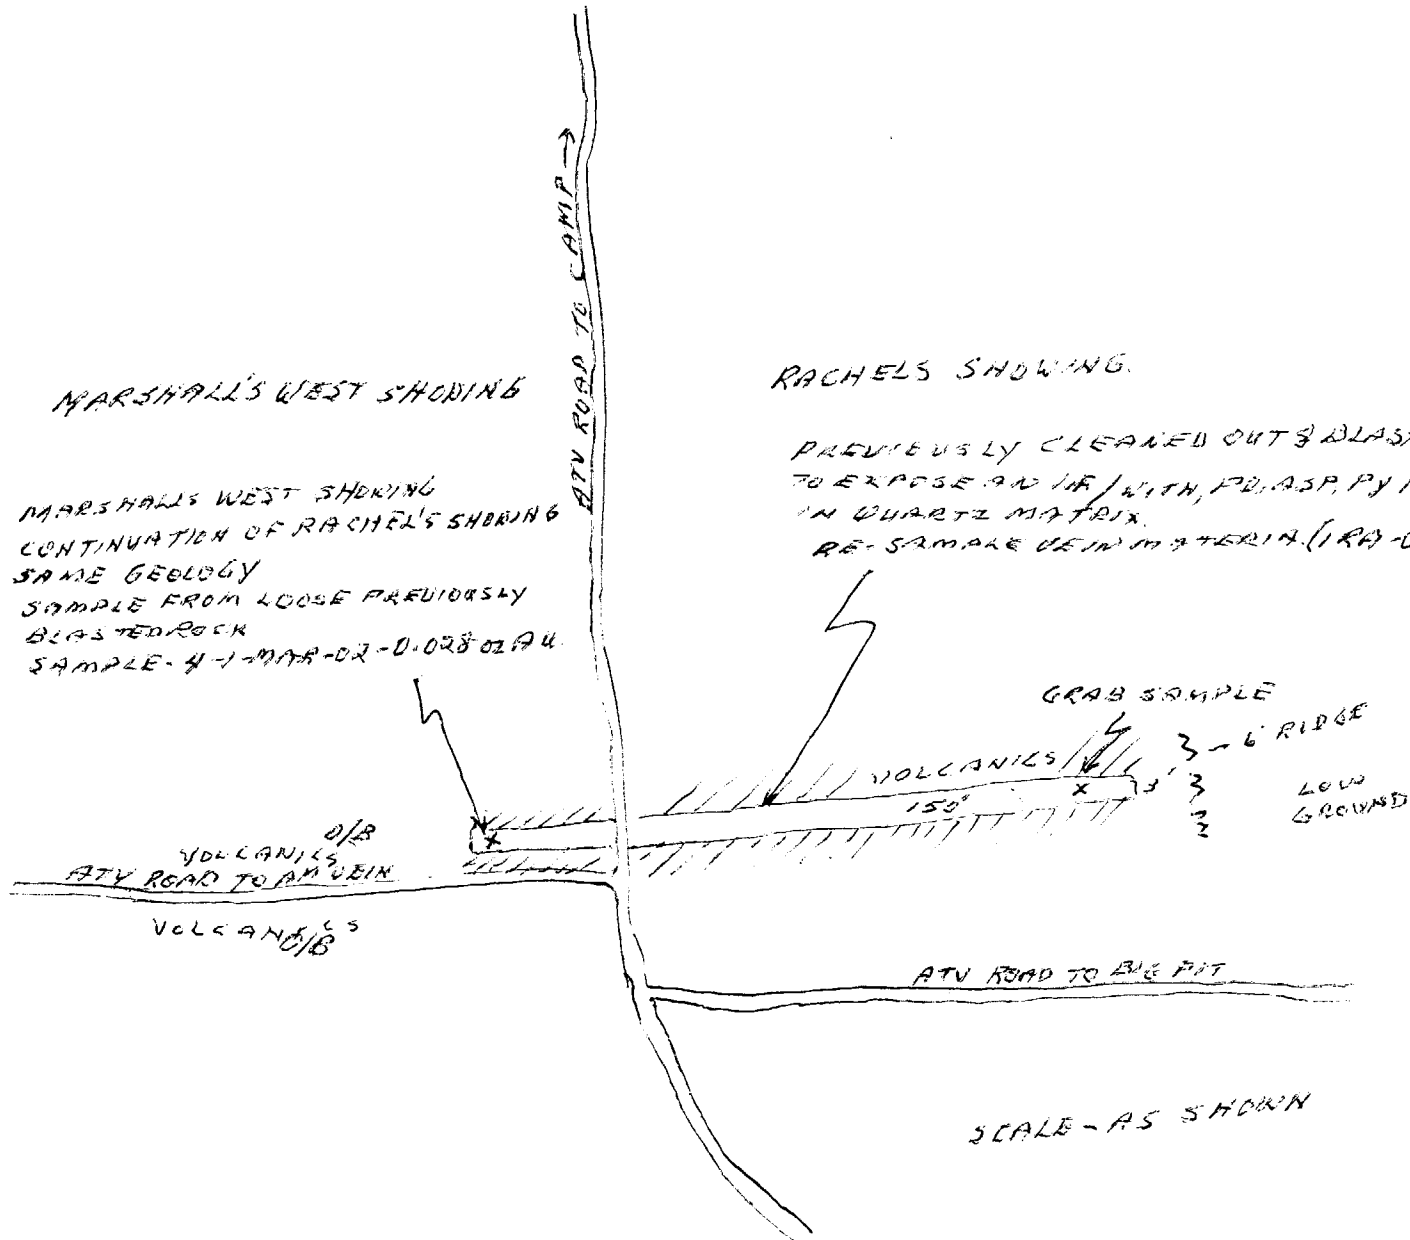 ATV ROAD TO CAMP →
MARSHALL'S WEST SHOWING
MARSHALLS WEST SHOWING
CONTINUATION OF RACHEL'S SHOWING
SAME GEOLOGY
SAMPLE FROM LOOSE PREVIOUSLY
BLASTED ROCK
SAMPLE-4-1-MAR-02-0.028 oz AU.
RACHELS SHOWING.
PREVIOUSLY CLEANED OUT & BLAST
TO EXPOSE AN IF/WITH, PO, ASP, PY
IN QUARTZ MATRIX.
RE-SAMPLE VEIN MATERIA (1RA-
GRAB SAMPLE
VOLCANICS
150'
X
3'
6' RIDGE
LOW
GROUND
X
O/B
VOLCANICS
ATV ROAD TO AM VEIN
VOLCANICS
O/B
ATV ROAD TO BIG PIT
SCALE - AS SHOWN